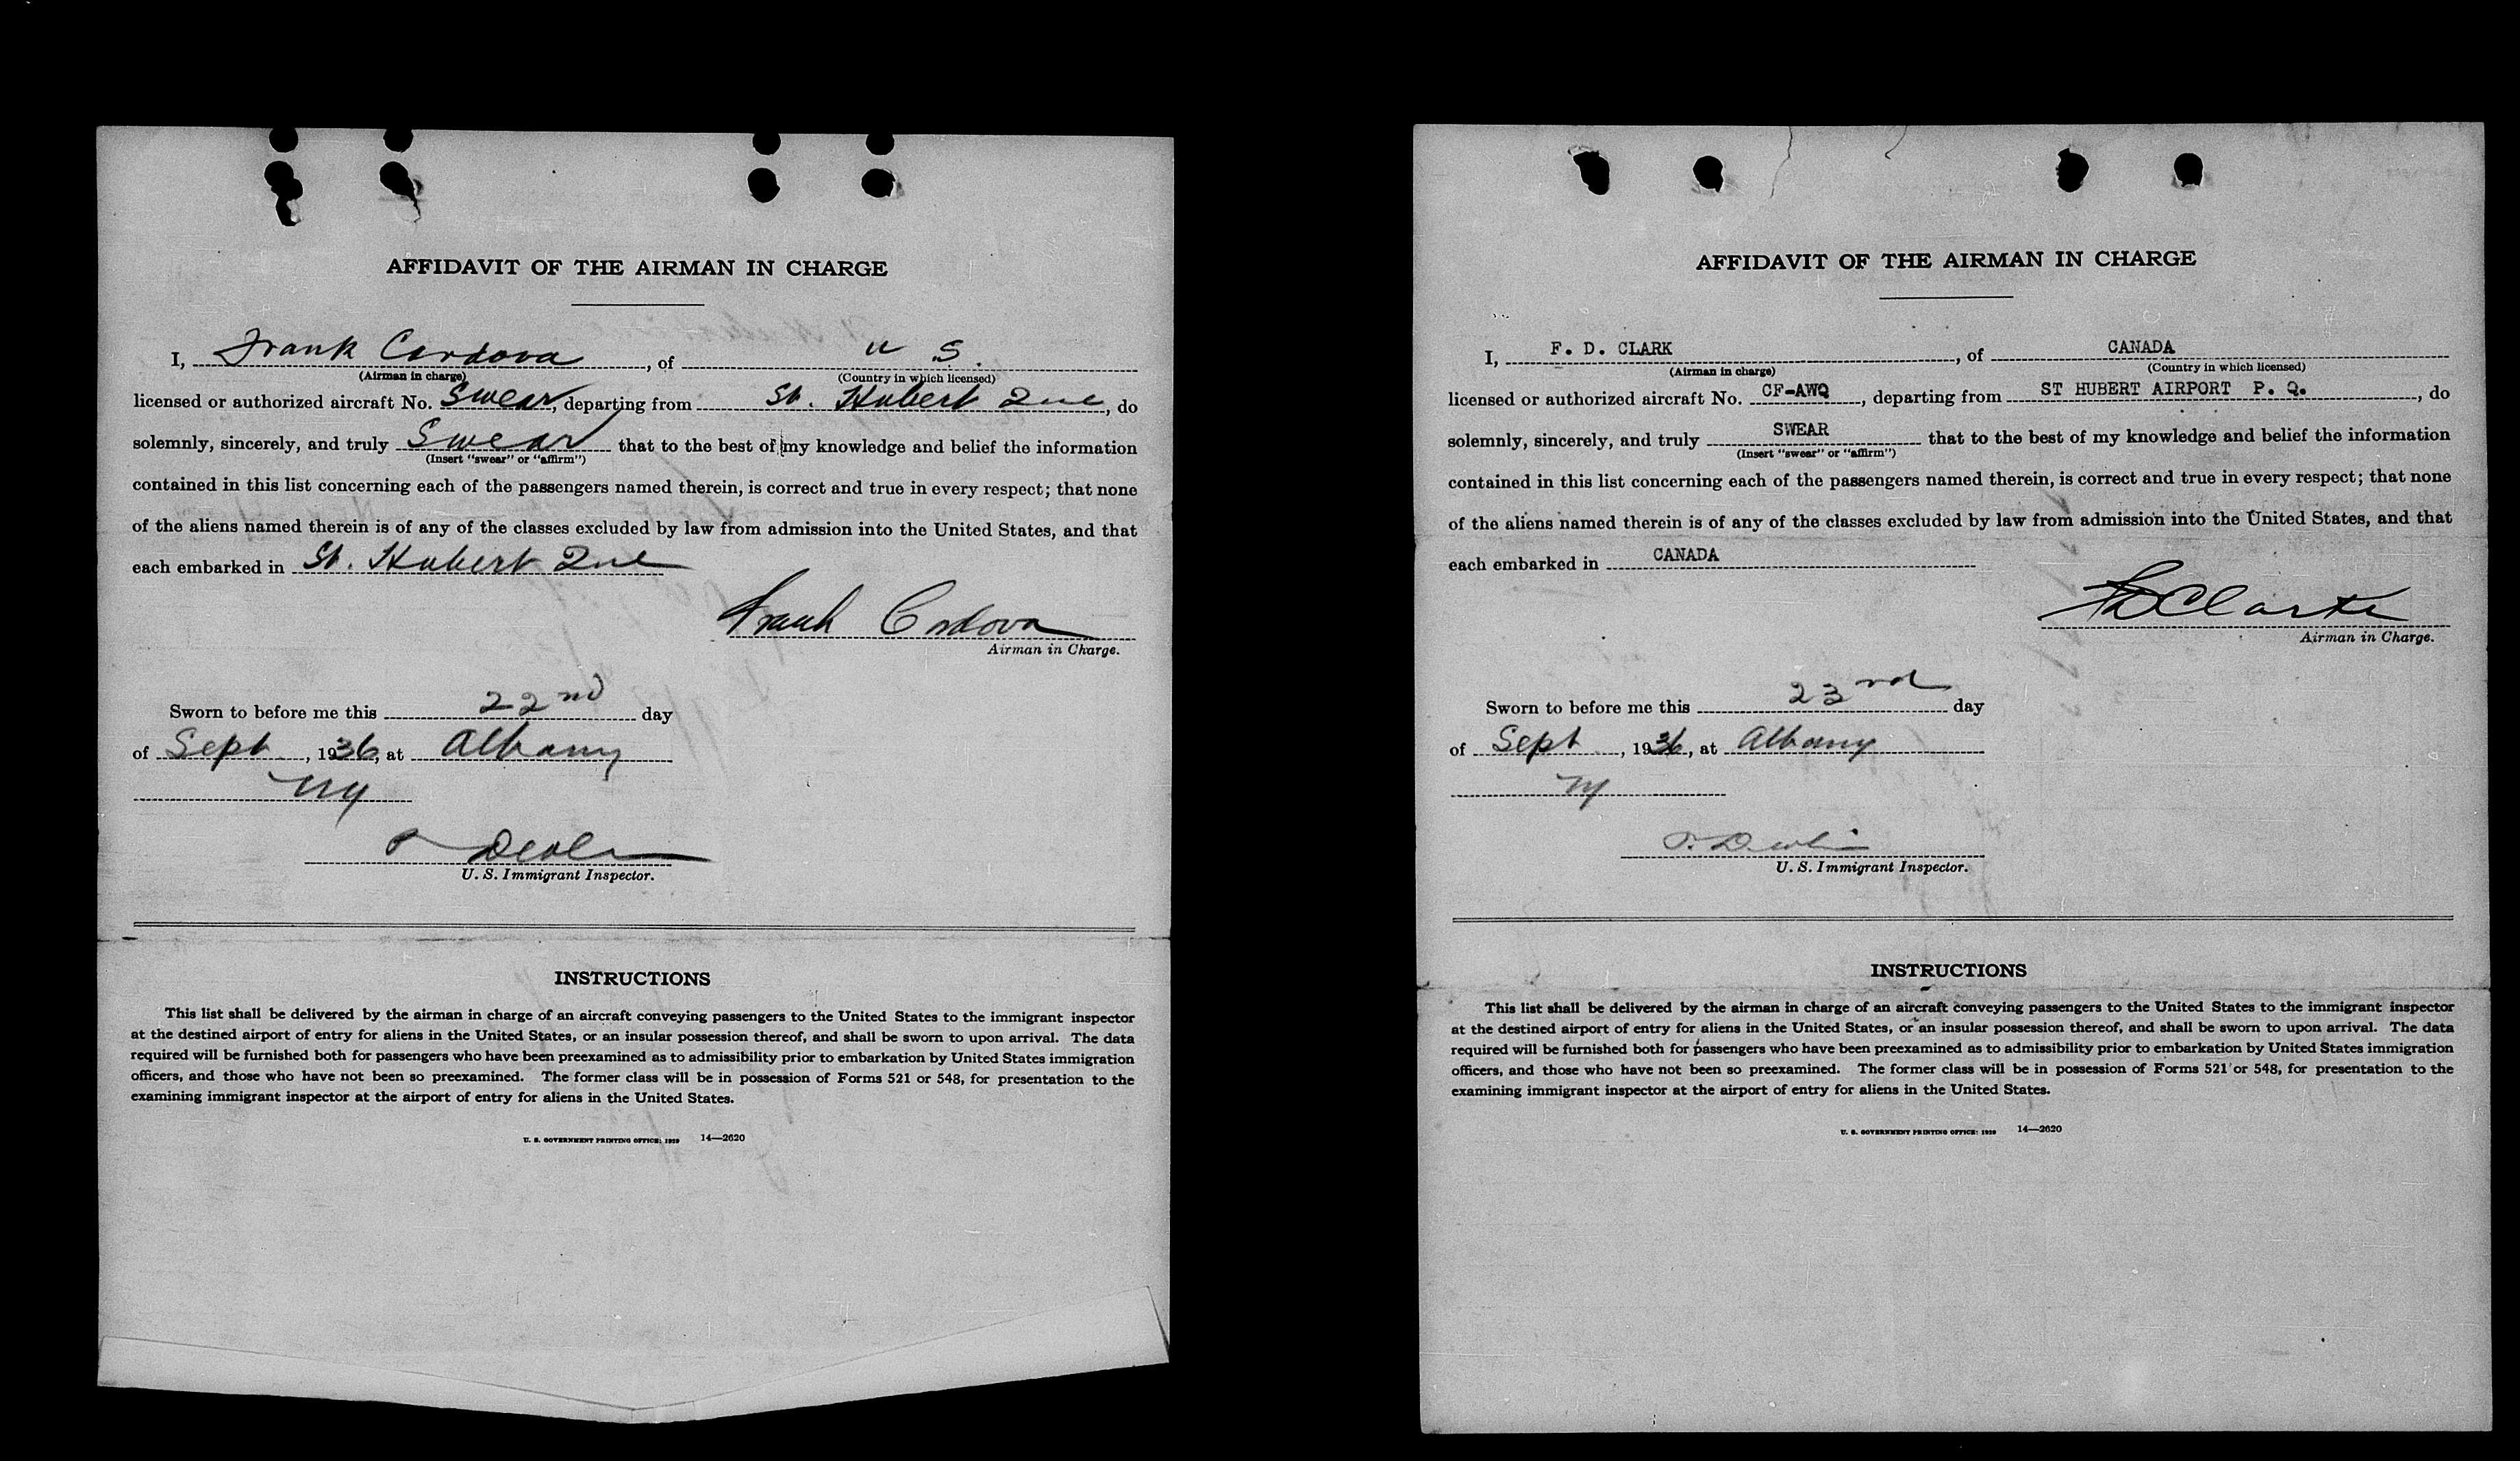 AFFIDAVIT OF THE AIRMAN IN CHARGE
I, Frank Cordova, of U S.
(Airman in charge) (Country in which licensed)
licensed or authorized aircraft No. Swear, departing from St. Hubert Que, do
solemnly, sincerely, and truly Swear that to the best of my knowledge and belief the information
(Insert "swear" or "affirm")
contained in this list concerning each of the passengers named therein, is correct and true in every respect; that none
of the aliens named therein is of any of the classes excluded by law from admission into the United States, and that
each embarked in St. Hubert Que
Frank Cordova
Airman in Charge.
Sworn to before me this 22nd day
of Sept, 1936, at Albany
NY
U. S. Immigrant Inspector.
INSTRUCTIONS
This list shall be delivered by the airman in charge of an aircraft conveying passengers to the United States to the immigrant inspector
at the destined airport of entry for aliens in the United States, or an insular possession thereof, and shall be sworn to upon arrival. The data
required will be furnished both for passengers who have been preexamined as to admissibility prior to embarkation by United States immigration
officers, and those who have not been so preexamined. The former class will be in possession of Forms 521 or 548, for presentation to the
examining immigrant inspector at the airport of entry for aliens in the United States.
U. S. GOVERNMENT PRINTING OFFICE: 1929 14—2620
AFFIDAVIT OF THE AIRMAN IN CHARGE
I, F. D. CLARK, of CANADA
(Airman in charge) (Country in which licensed)
licensed or authorized aircraft No. CF-AWQ, departing from ST HUBERT AIRPORT P. Q., do
solemnly, sincerely, and truly SWEAR that to the best of my knowledge and belief the information
(Insert "swear" or "affirm")
contained in this list concerning each of the passengers named therein, is correct and true in every respect; that none
of the aliens named therein is of any of the classes excluded by law from admission into the United States, and that
each embarked in CANADA
FD Clarke
Airman in Charge.
Sworn to before me this 23rd day
of Sept, 1936, at Albany
NY
U. S. Immigrant Inspector.
INSTRUCTIONS
This list shall be delivered by the airman in charge of an aircraft conveying passengers to the United States to the immigrant inspector
at the destined airport of entry for aliens in the United States, or an insular possession thereof, and shall be sworn to upon arrival. The data
required will be furnished both for passengers who have been preexamined as to admissibility prior to embarkation by United States immigration
officers, and those who have not been so preexamined. The former class will be in possession of Forms 521 or 548, for presentation to the
examining immigrant inspector at the airport of entry for aliens in the United States.
U. S. GOVERNMENT PRINTING OFFICE: 1929 14—2620